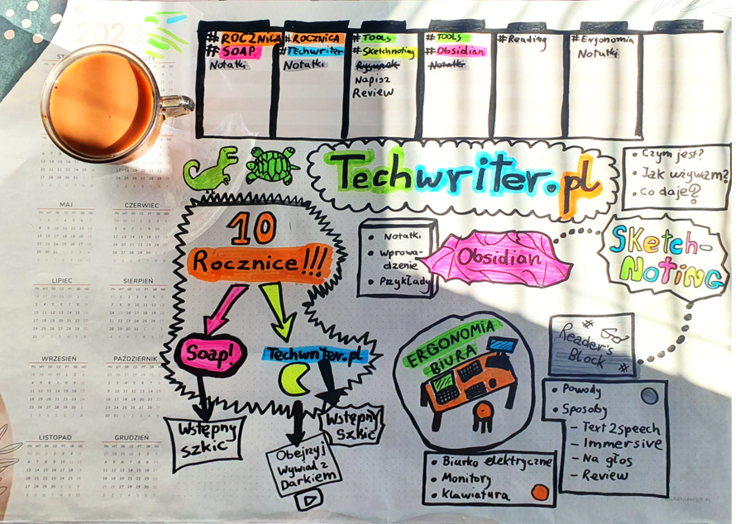 #ROCZNICA
#SOAP
Notatki
#ROCZNICA
#Techwriter
Notatki
#TOOLS
#Sketchnoting
Rysunek
Napisz
Review
#TOOLS
#Obsidian
Notatki
#Reading
#Ergonomia
Notatki
Techwriter.pl
• Czym jest?
• Jak używam?
• Co daje?
10
Rocznice!!!
• Notatki
• Wprowa-
dzenie
• Przykłady
Obsidian
SKetch-
NOTING
Soap!
Techwriter.pl
ERGONOMIA
BIURA
#
Reader's
Block
Wstępny
szkic
Wstępny
Szkic
Obejrzyj
Wywiad z
Darkiem
• Powody
• Sposoby
– Text2speech
– Immersive
– Na głos
– Review
• Biurko elektryczne
• Monitory
• Klawiatura
MAJ
CZERWIEC
LIPIEC
SIERPIEŃ
WRZESIEŃ
PAŹDZIERNIK
LISTOPAD
GRUDZIEŃ